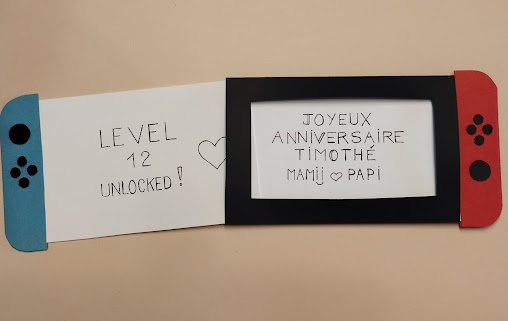 LEVEL
12
UNLOCKED!
JOYEUX
ANNIVERSAIRE
TIMOTHÉ
MAMIJ ♡ PAPI